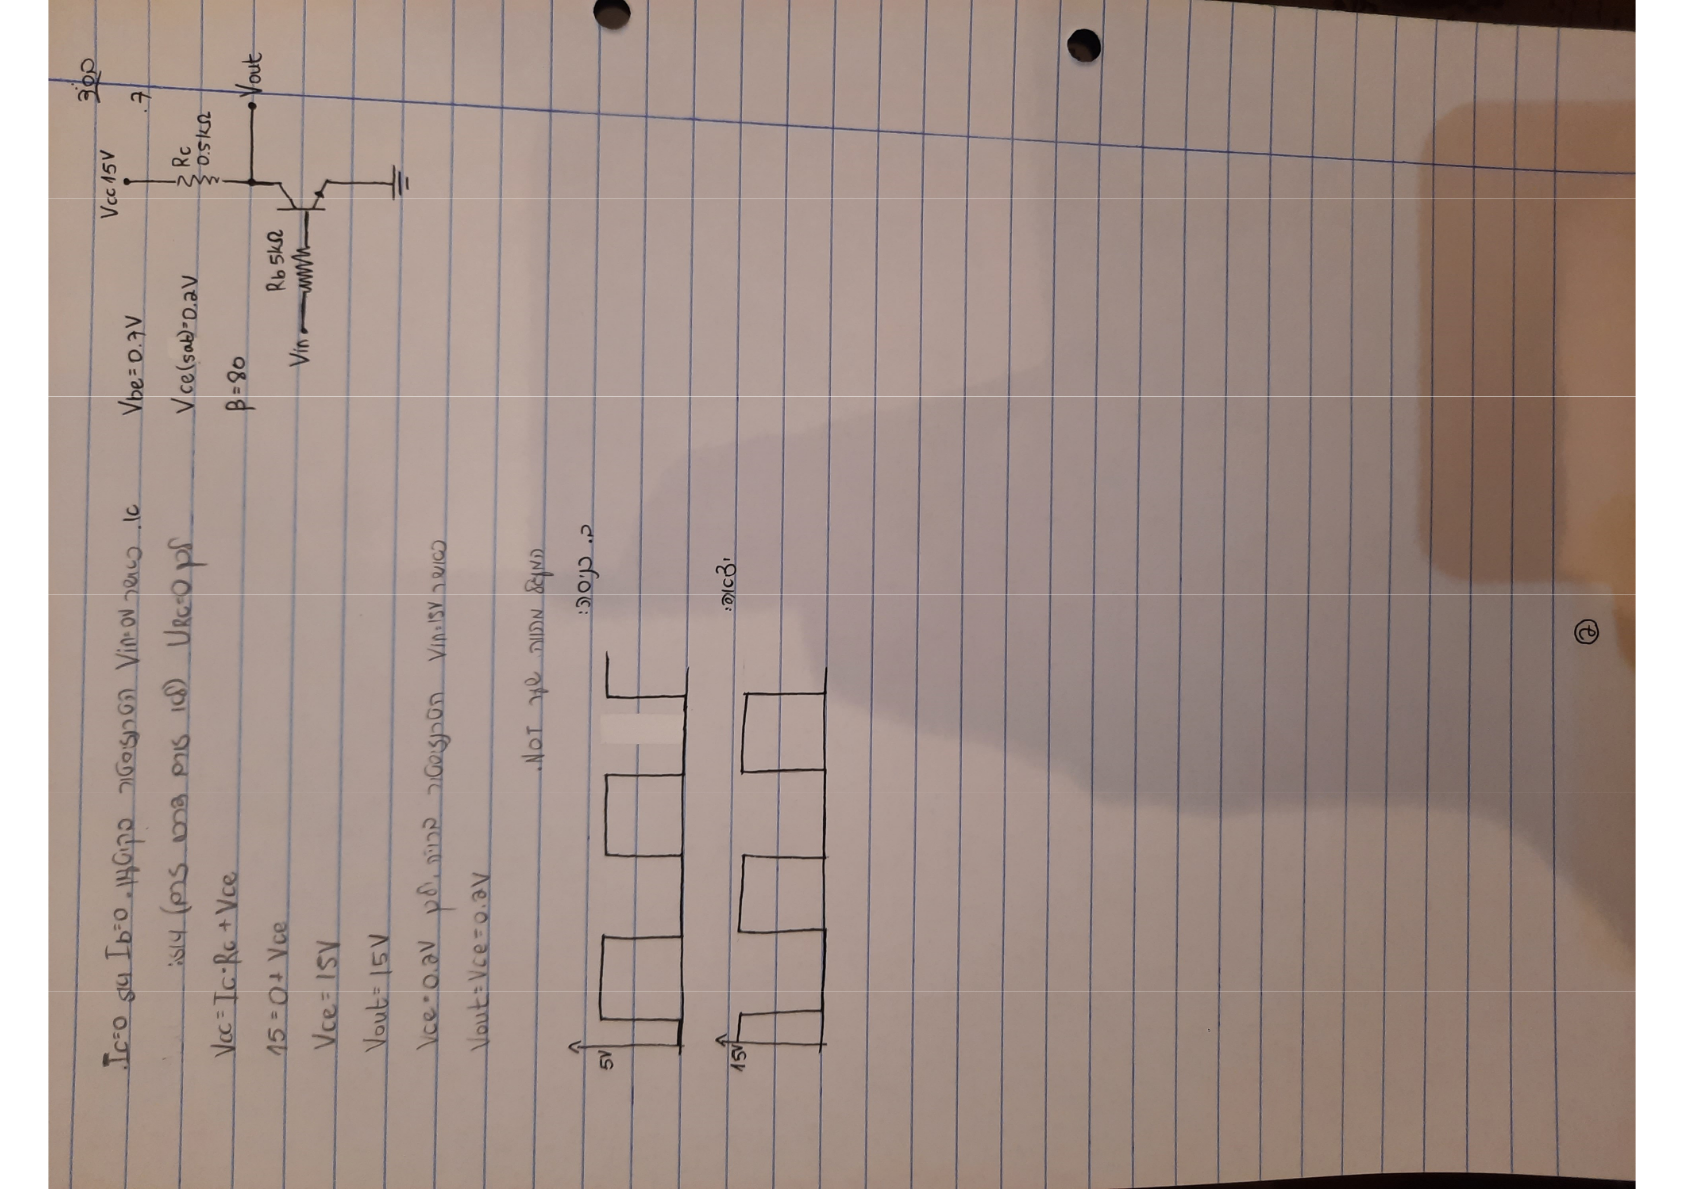 בס"ד
7.
Vcc 15V
Rc
0.5kΩ
Vout
Rb 5kΩ
Vin
Vbe=0.7V
Vce(sat)=0.2V
β=80
א. כאשר Vin=0V הטרנזיסטור בקיטעון. Ib=0 ואז Ic=0.
לכן URc=0 (לפי
ואז:
Vcc=Ic·Rc+Vce
15=0+Vce
Vce=15V
Vout=15V
כאשר Vin=15V הטרנזיסטור ברוויה, לכן Vce=0.2V
Vout=Vce=0.2V
המעגל מהווה שער NOT.
ב. כניסה:
5V
יציאה:
15V
7